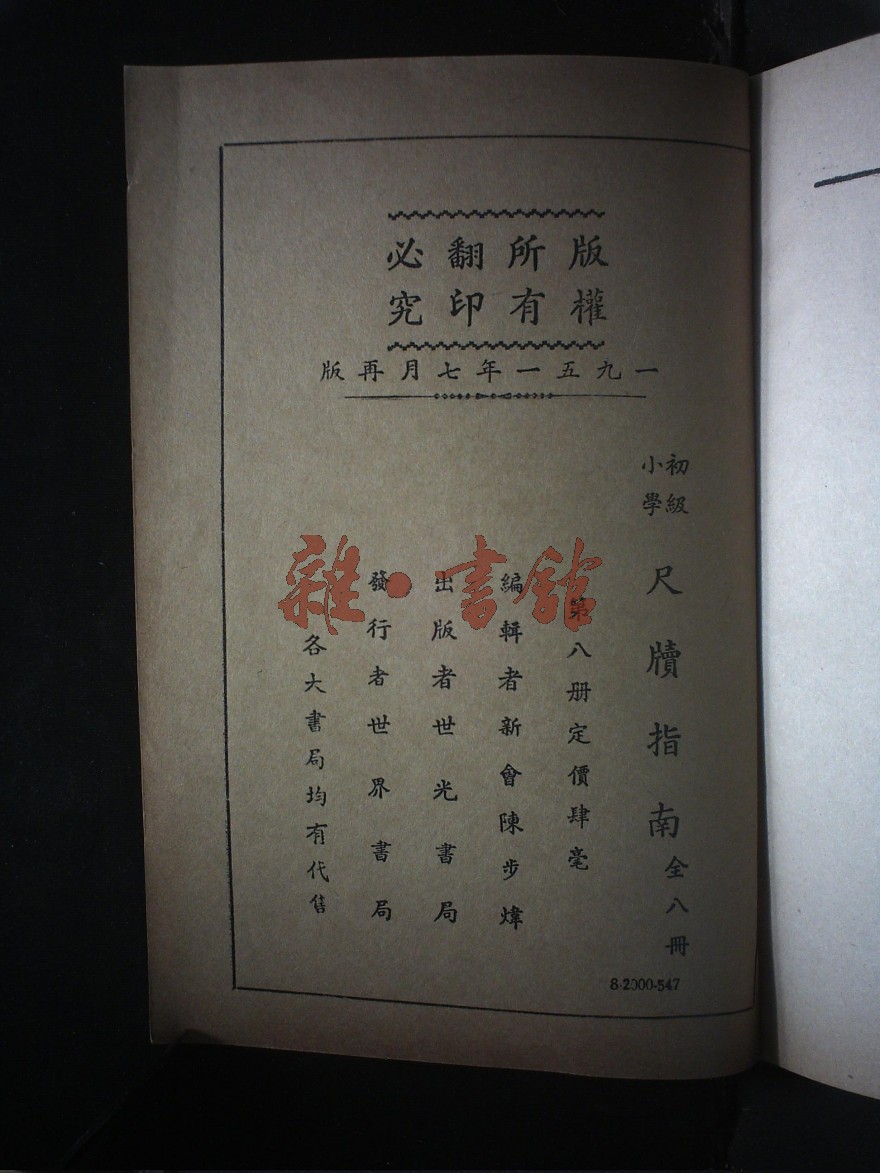 版權
所有
翻印
必究
一九五一年七月再版
初級
小學
尺牘指南
全八冊
第八册定價肆毫
編輯者新會陳步煒
出版者世光書局
發行者世界書局
各大書局均有代售
8-2000-547
雜·書館